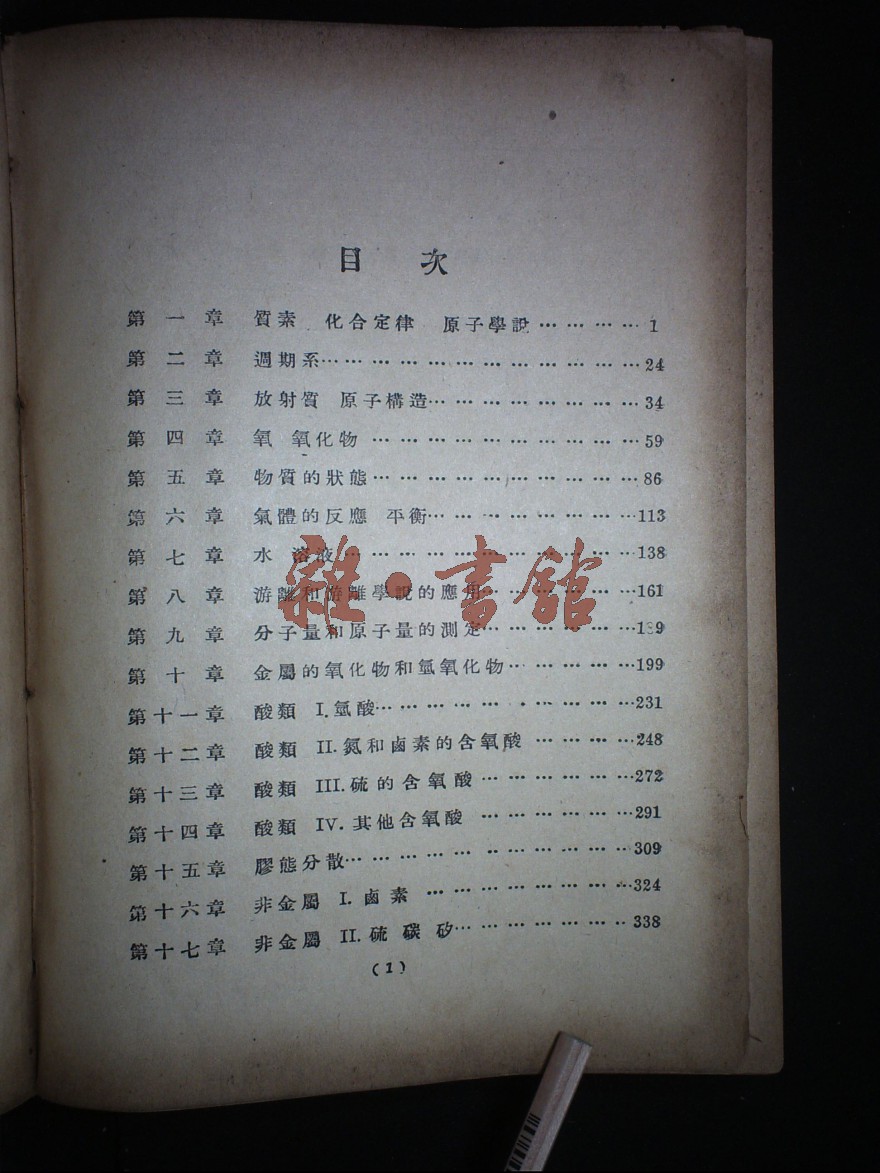 目 次
第一章 質素 化合定律 原子學說………… 1
第二章 週期系…………………………24
第三章 放射質 原子構造………………34
第四章 氧 氧化物 ……………………59
第五章 物質的狀態……………………86
第六章 氣體的反應 平衡………………113
第七章 水 溶液………………………138
第八章 游離和游離學說的應用…………161
第九章 分子量和原子量的測定…………
第十章 金屬的氧化物和氫氧化物………199
第十一章 酸類 I.氫酸…………………231
第十二章 酸類 II.氮和鹵素的含氧酸 ………248
第十三章 酸類 III.硫的含氧酸 …………272
第十四章 酸類 IV.其他含氧酸 …………291
第十五章 膠態分散……………………309
第十六章 非金屬 I.鹵素 ………………324
第十七章 非金屬 II.硫 碳 矽……………338
(1)
雜·書館